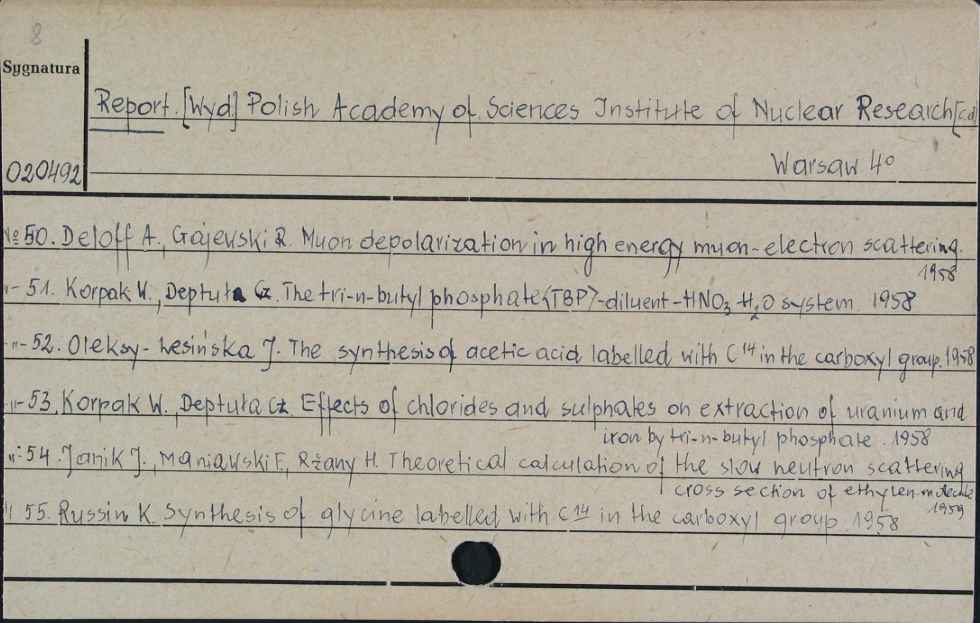 8
Sygnatura
Report. [Wyd] Polish Academy of Sciences Institute of Nuclear Research [cd]
020492
Warsaw 4o
№ 50. Deloff A., Gajewski R. Muon depolarization in high energy muon-electron scattering.
1958
-"- 51. Korpak W., Deptuła Cz. The tri-n-butyl phosphate <TBP>-diluent-HNO3 H2O system. 1958
-"- 52. Oleksy-Lesińska J. The synthesis of acetic acid labelled with C14 in the carboxyl group. 1958
-"- 53. Korpak W., Deptuła Cz. Effects of chlorides and sulphates on extraction of uranium and
iron by tri-n-butyl phosphate. 1958
-"- 54. Janik J., Maniawski F., Rżany H. Theoretical calculation of the slow neutron scattering
cross section of ethylen-molecule
1959
" 55. Russin K. Synthesis of glycine labelled with C14 in the carboxyl group 1958